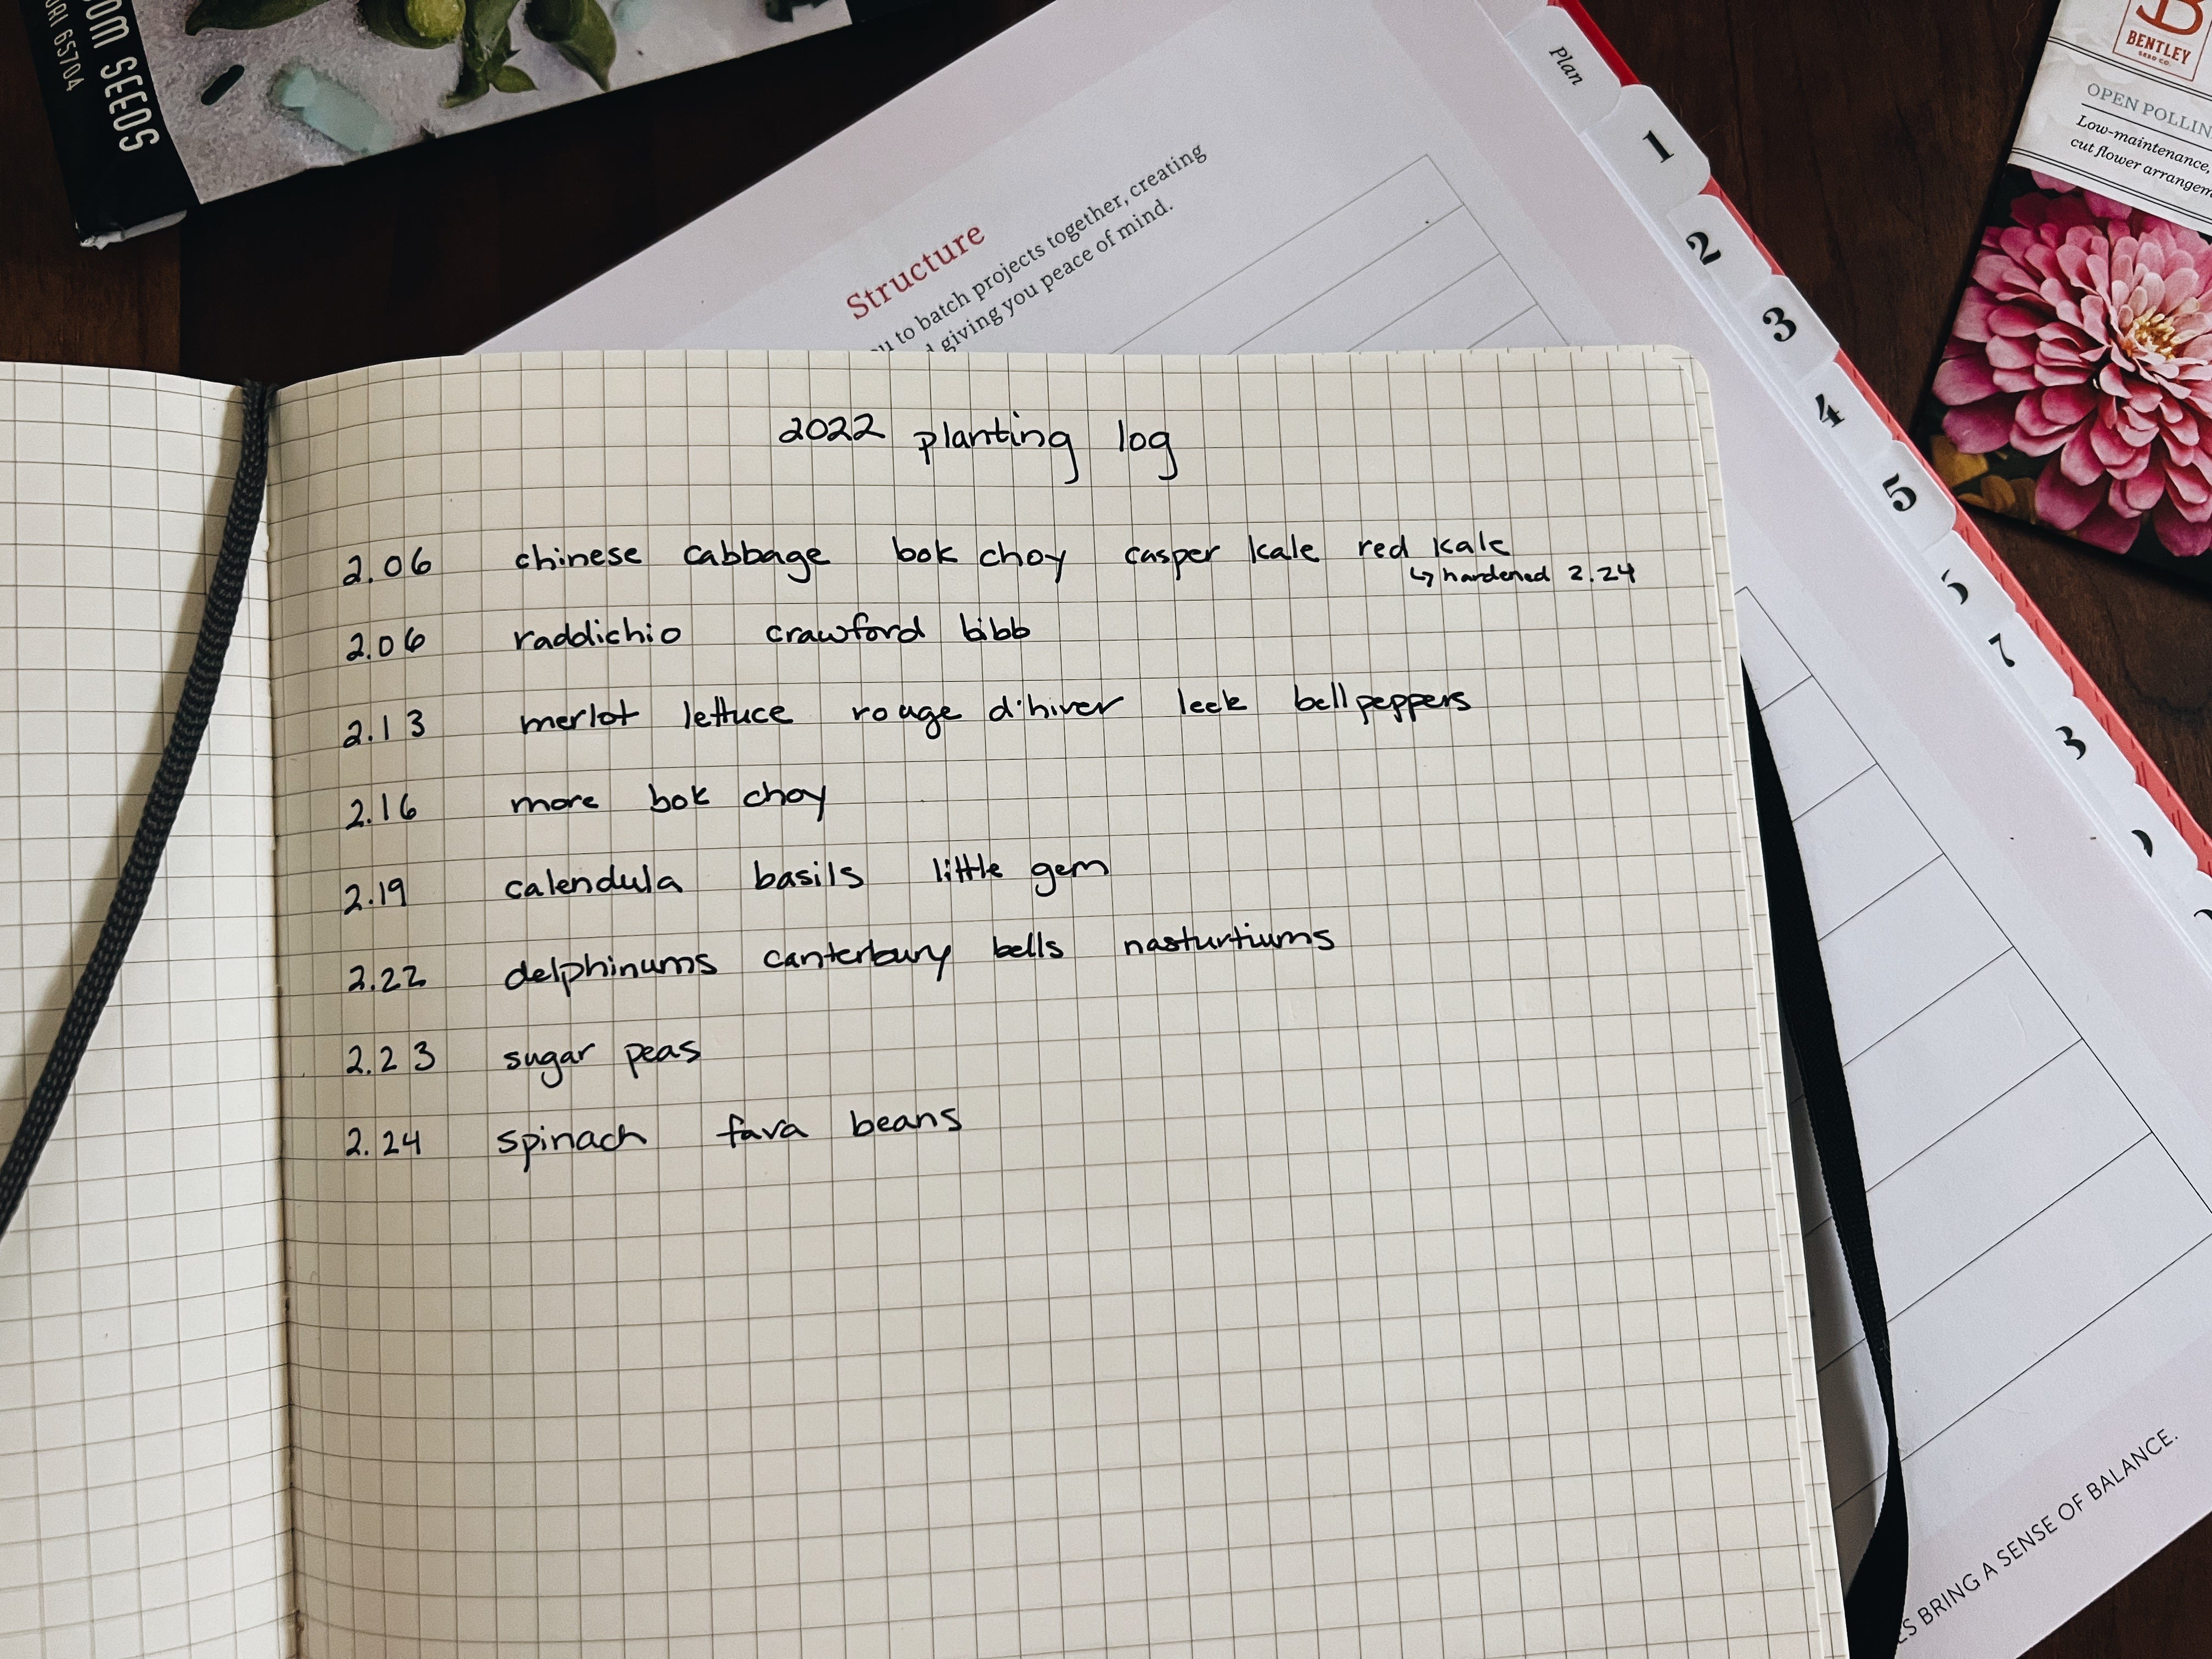 SEEDS
65704
Plan
1
2
3
4
5
7
Structure
to batch projects together, creating
giving you peace of mind.
BENTLEY
SEED CO.
OPEN POLLIN
Low-maintenance,
cut flower arrangem
2022 planting log
2.06 chinese cabbage bok choy casper kale red kale
↳ hardened 2.24
2.06 raddichio crawford bibb
2.13 merlot lettuce rouge d'hiver leek bell peppers
2.16 more bok choy
2.19 calendula basils little gem
2.22 delphinums canterbury bells nasturtiums
2.23 sugar peas
2.24 spinach fava beans
BRING A SENSE OF BALANCE.